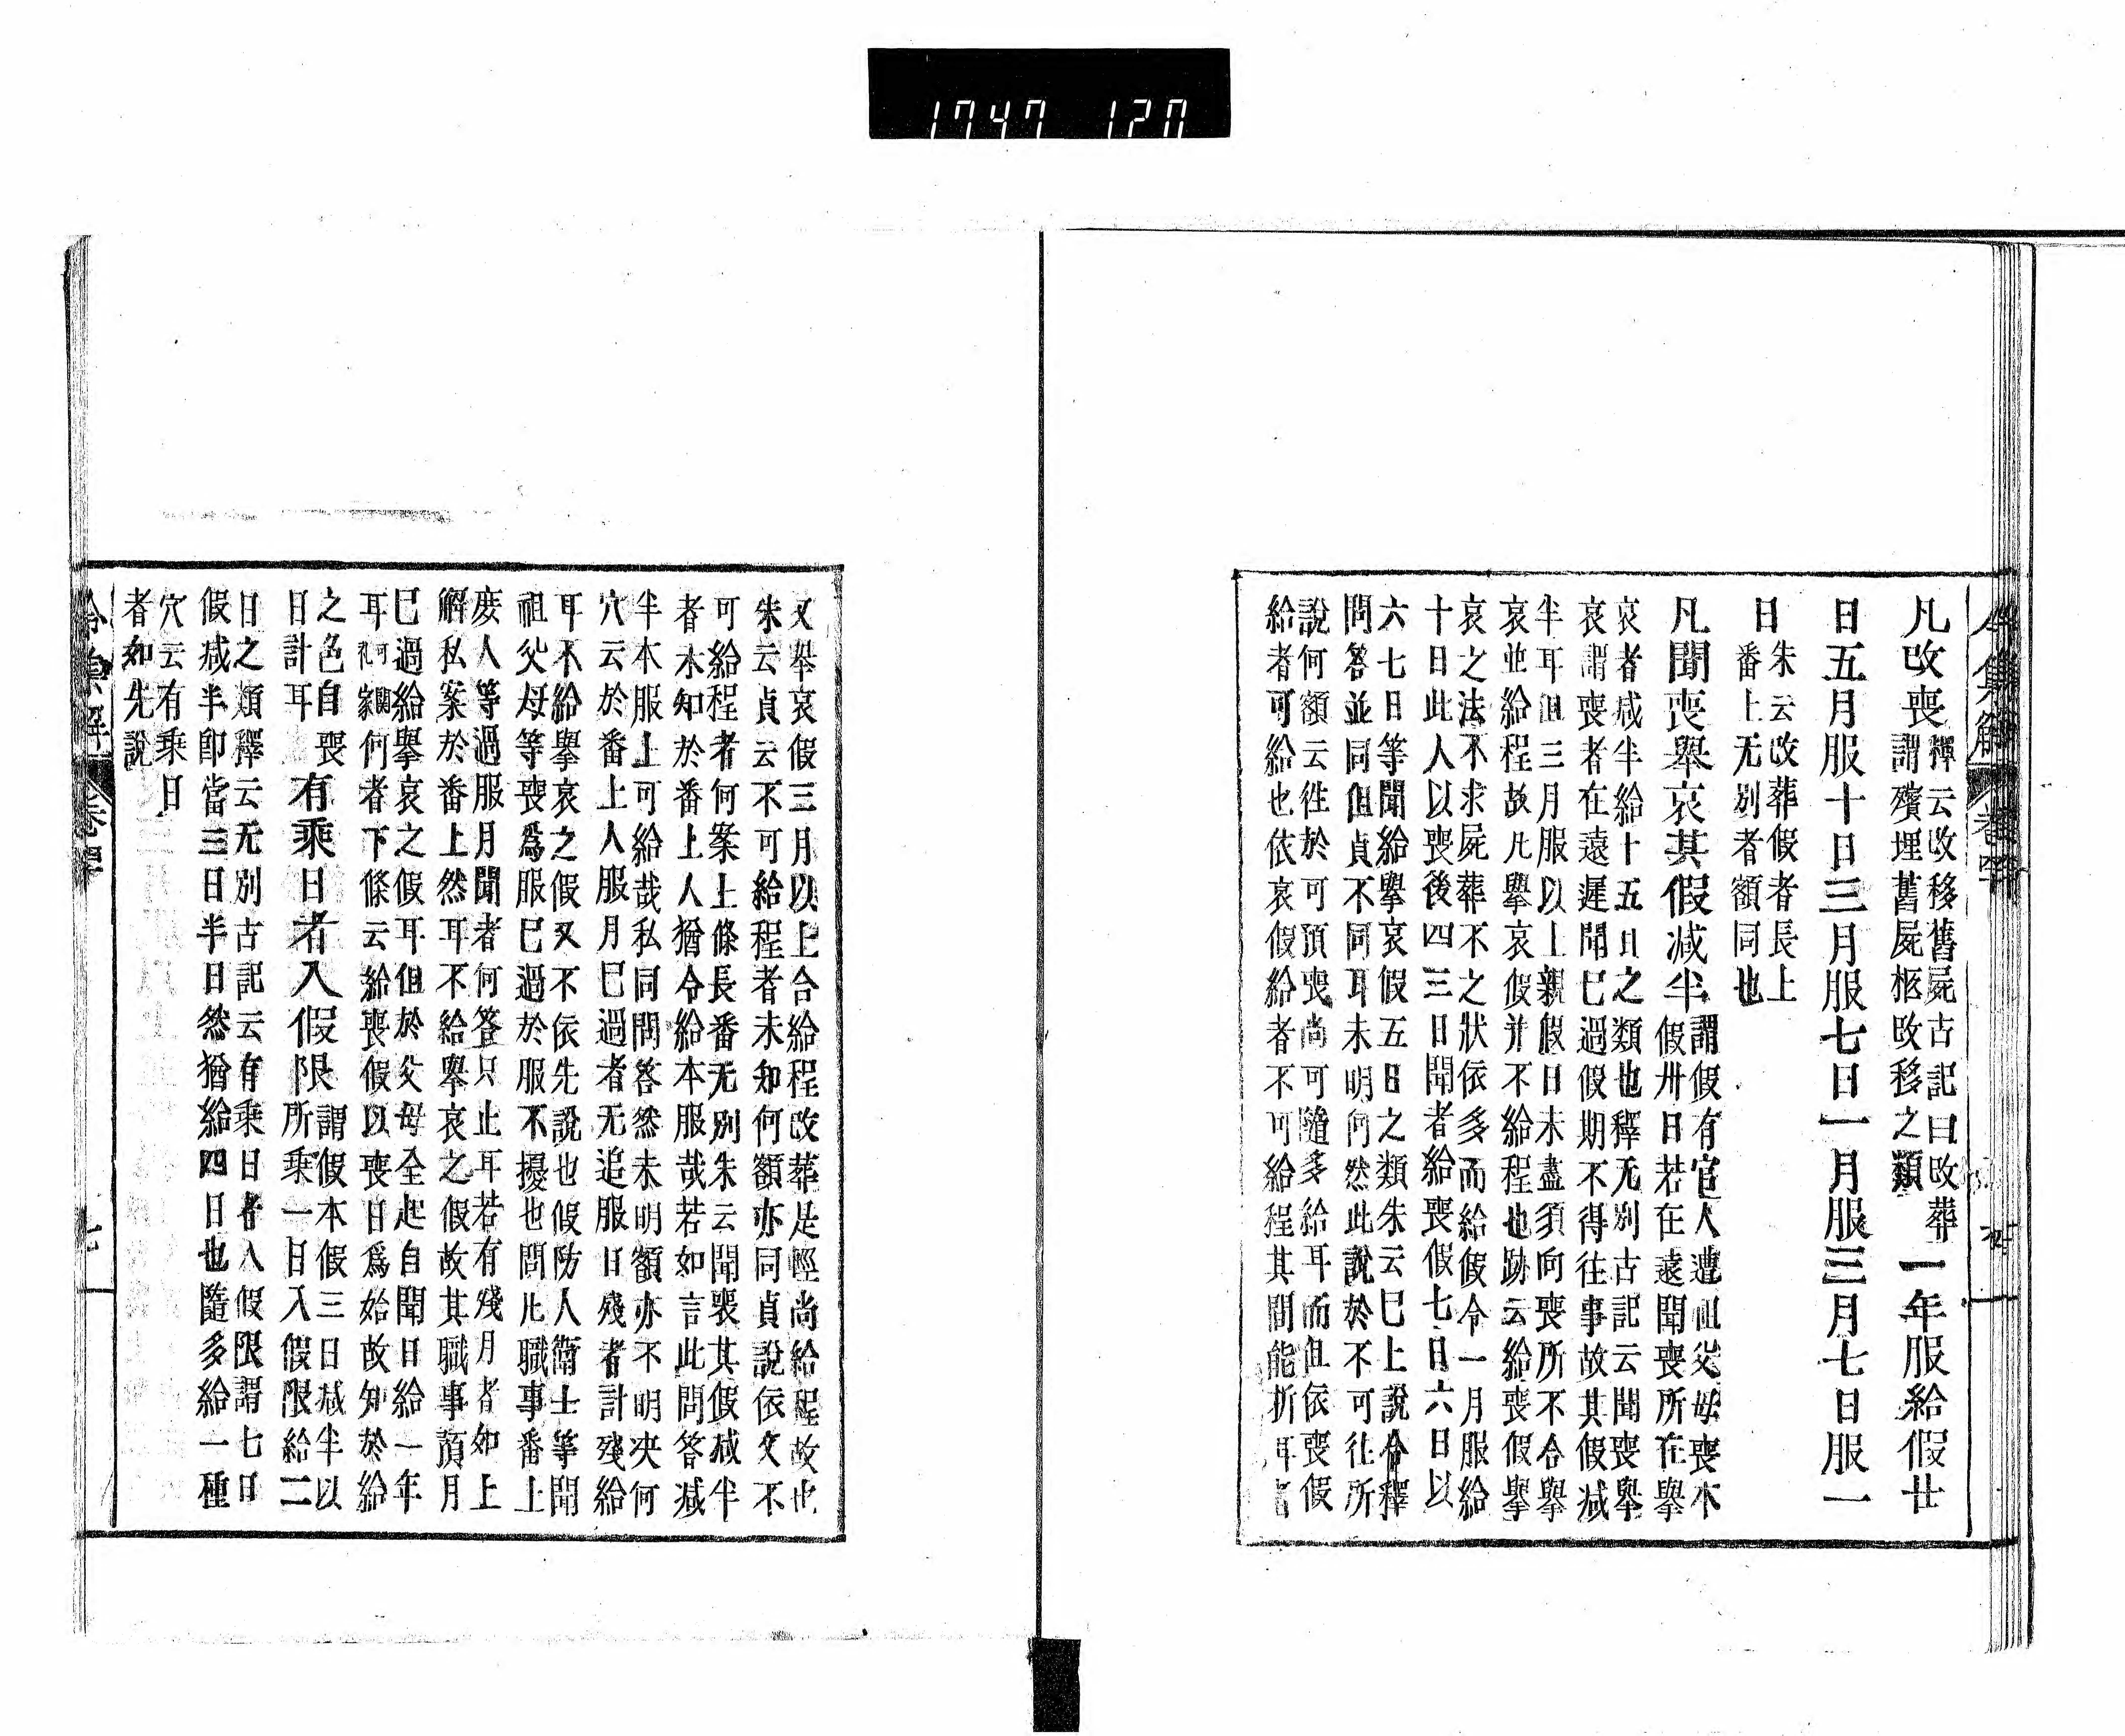 1747 120
凡改喪釋云改移舊屍古記曰改葬
謂殯埋舊屍柩改移之類一年服給假廿
日五月服十日三月服七日一月服三月七日服一
日朱云改葬假者長上
番上无別者額同也
凡聞喪舉哀其假減半謂假有官人遭祖父母喪本
假卅日若在遠聞喪所在擧
哀者減半給十五日之類也釋无別古記云聞喪擧
哀謂喪者在遠遲聞已過假期不得往事故其假減
半耳但三月服以上親假日未盡須向喪所不合擧
哀並給程故凡擧哀假并不給程也跡云給喪假擧
哀之法不求屍葬不之狀依多而給假令一月服給
十日此人以喪後四三日聞者給喪假七日六日以
六七日等聞給擧哀假五日之類朱云已上說合釋
問答並同但貞不同耳未明何然此說於不可往所
說何額云往於可預喪尚可隨多給耳而但依喪假
給者可給也依哀假給者不可給程其間能折耳者
又擧哀假三月以上合給程改葬是輕尚給程故也
朱云貞云不可給程者未知何額亦同貞說依文不
可給程者何案上條長番无別朱云聞喪其假減半
者未知於番上人猶令給本服哉若如言此問答減
半本服上可給哉私同問答然未明額亦不明决何
穴云於番上人服月已過者无追服日殘者計殘給
耳不給擧哀之假又不依先說也假防人衛士等聞
祖父母等喪爲服已過於服不擾也問凡職事番上
庶人等過服月聞者何答只止耳若有殘月者如上
解私案於番上然耳不給擧哀之假故其職事預月
已過給擧哀之假耳但於父母全起自聞日給一年
耳何者下條云給喪假以喪日爲始故知於給
之色自喪
日計耳有乘日者入假限謂假本假三日減半以
所乘一日入假限給二
日之類釋云无別古記云有乘日者入假限謂七日
假減半即當三日半日然猶給四日也隨多給一種
穴云有乘日
者如先說